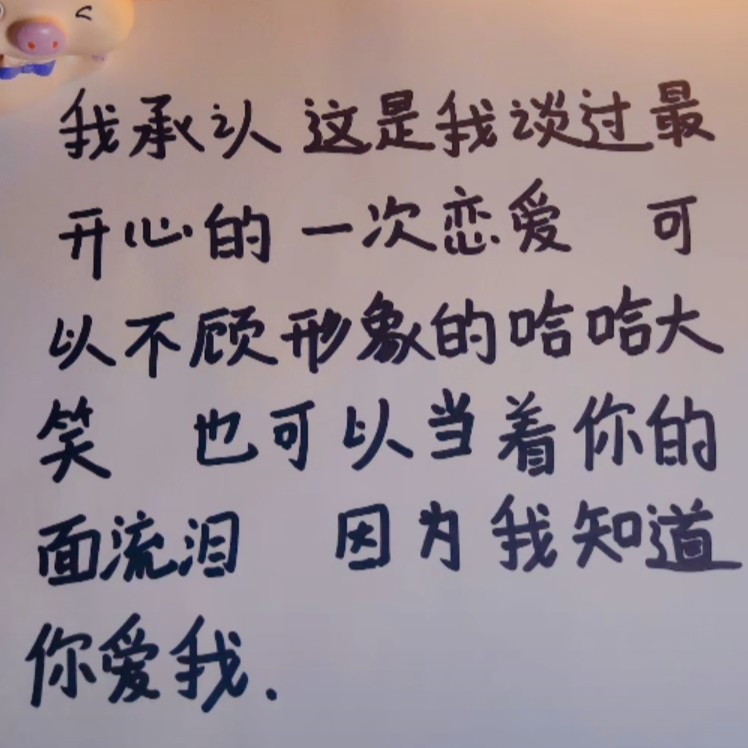 我承认 这是我谈过最
开心的 一次恋爱 可
以不顾形象的哈哈大
笑 也可以当着你的
面流泪 因为我知道
你爱我.